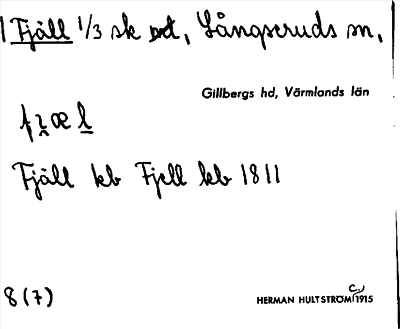 Fjäll 1/3 sk, Långseruds sn,
Gillbergs hd, Värmlands län
Fjäll kb Fjell kb 1811
8(7)
HERMAN HULTSTRÖM C., 1915